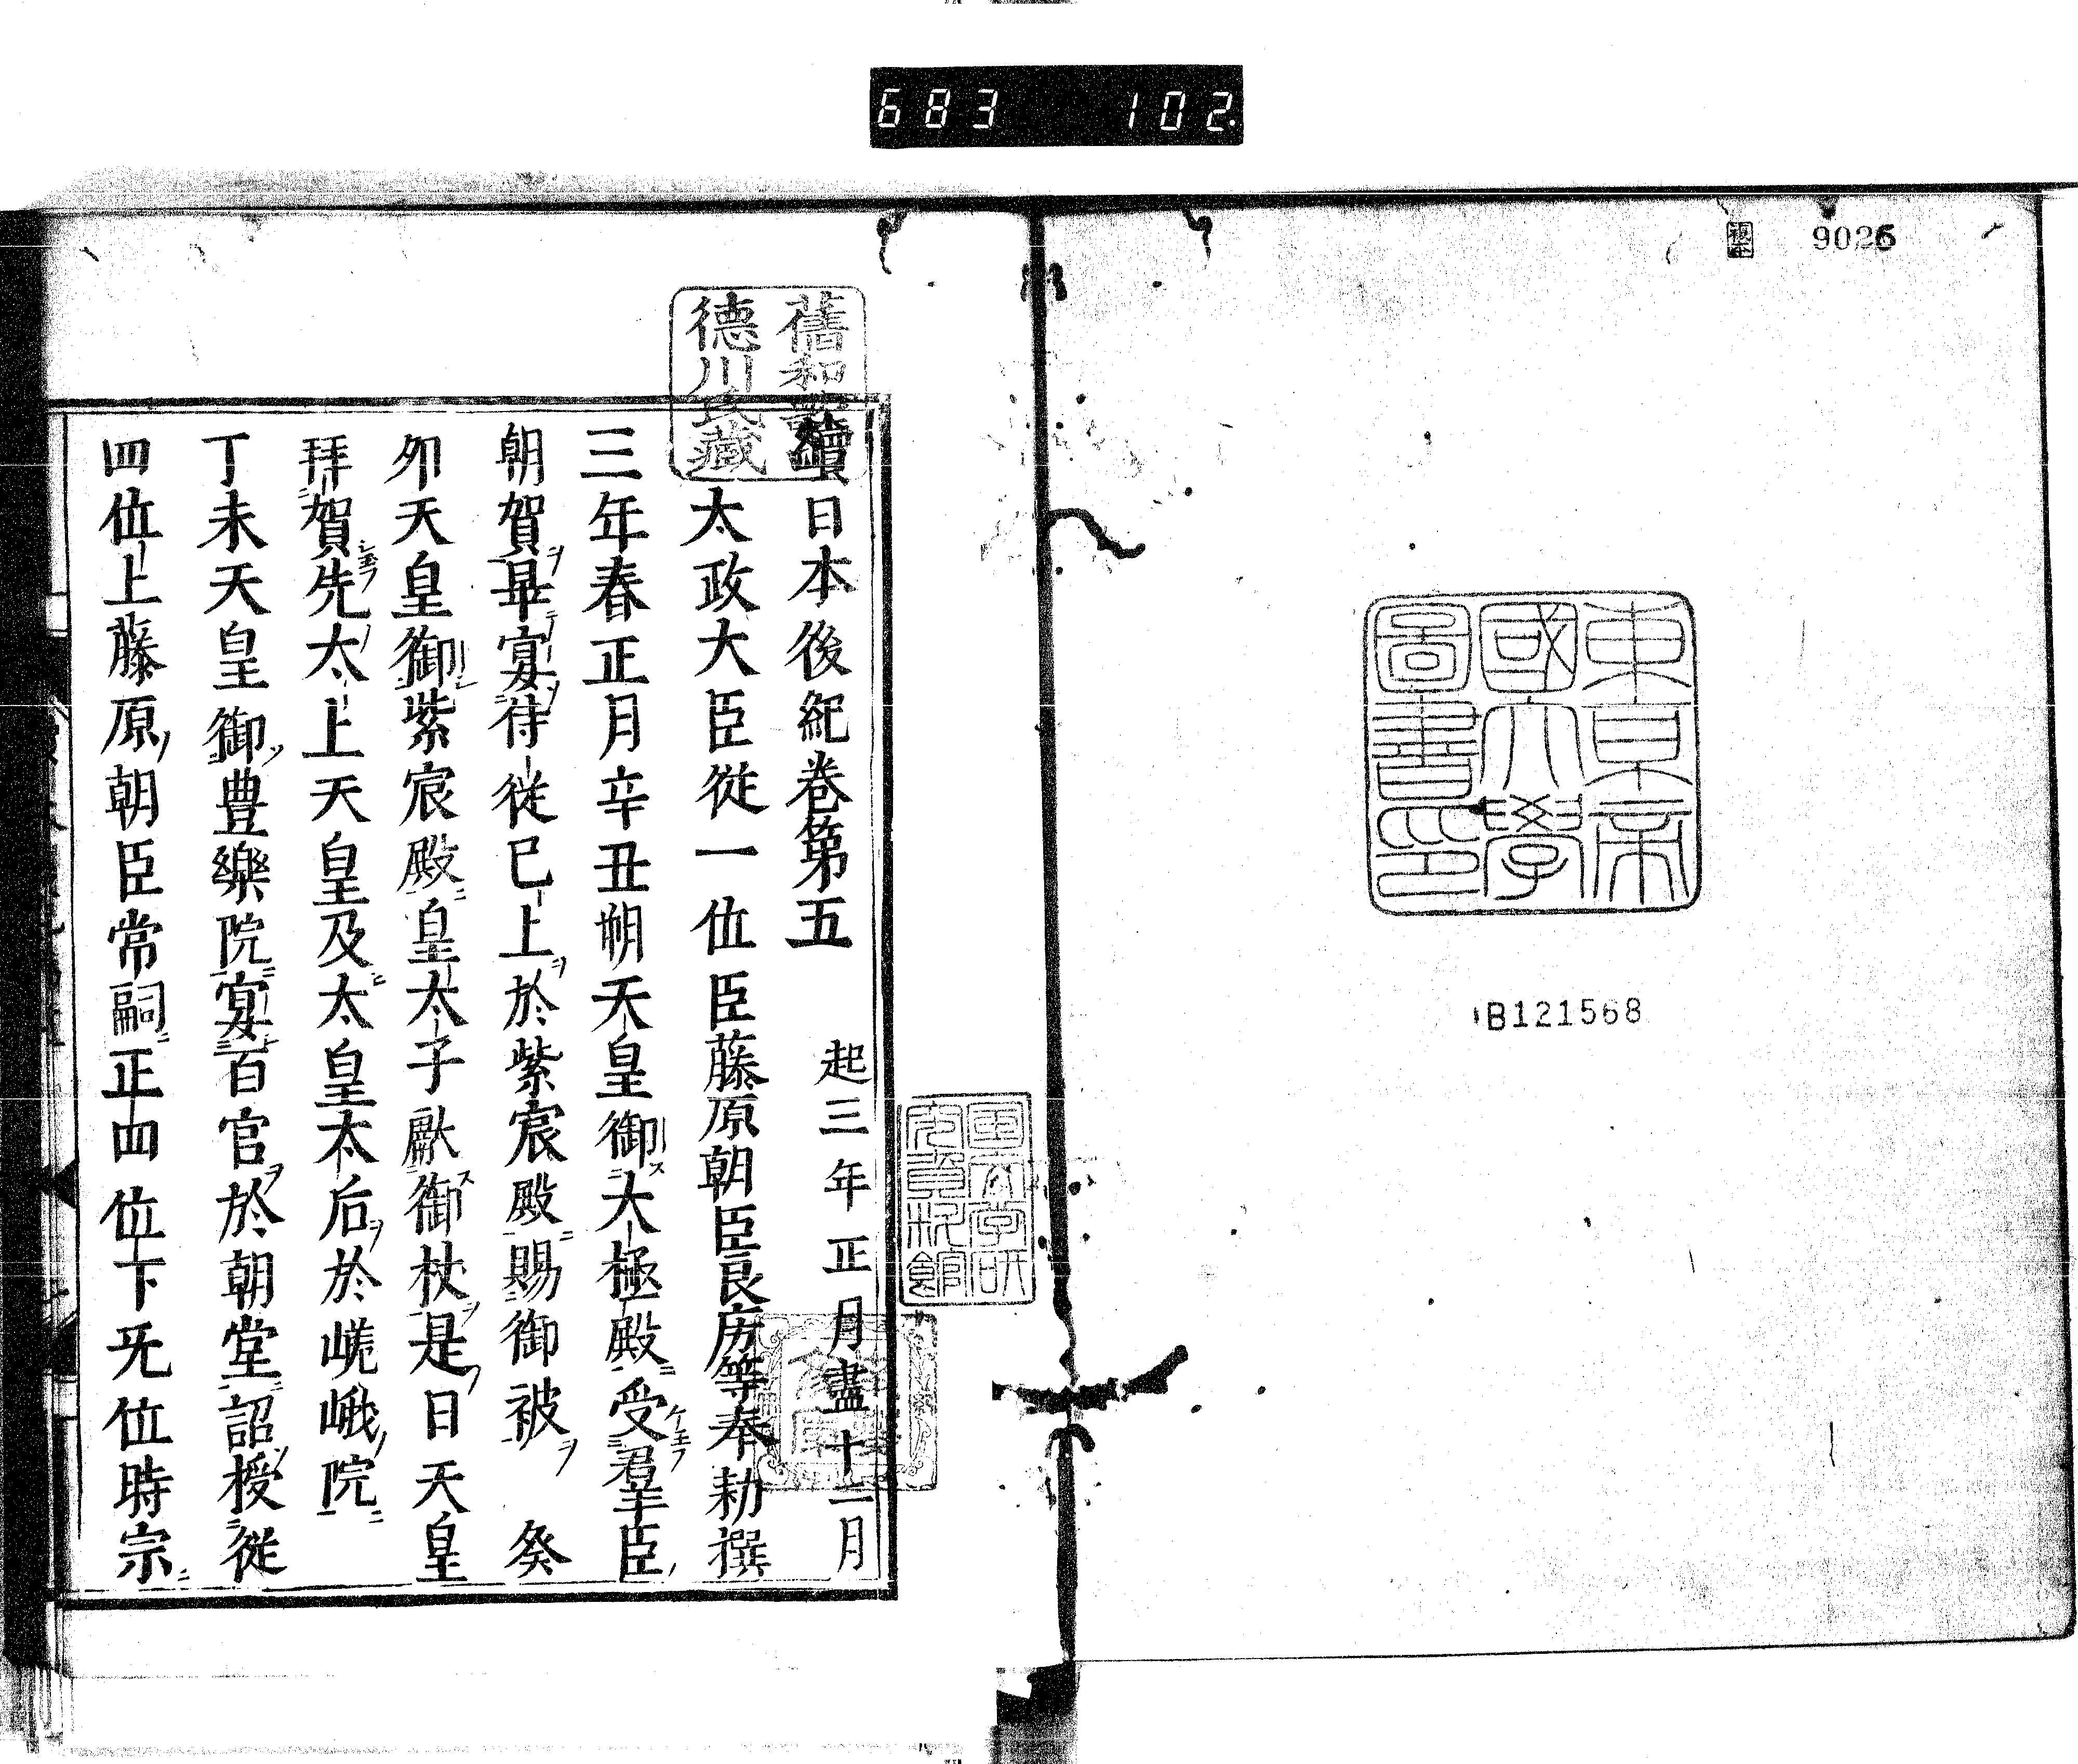 683 102.
複本
9026
東京帝
國大學
圖書印
B121568
舊和歌
德川氏藏
續日本後紀卷第五 起三年正月盡十二月
太政大臣從一位臣藤原朝臣良房等奉勅撰
三年春正月辛丑朔天皇御大極殿受羣臣
朝賀畢宴侍從已上於紫宸殿賜御被 癸
卯天皇御紫宸殿皇太子獻御杖是日天皇
拜賀先太上天皇及太皇太后於嵯峨院
丁未天皇御豊樂院宴百官於朝堂詔授從
四位上藤原朝臣常嗣正四位下旡位時宗